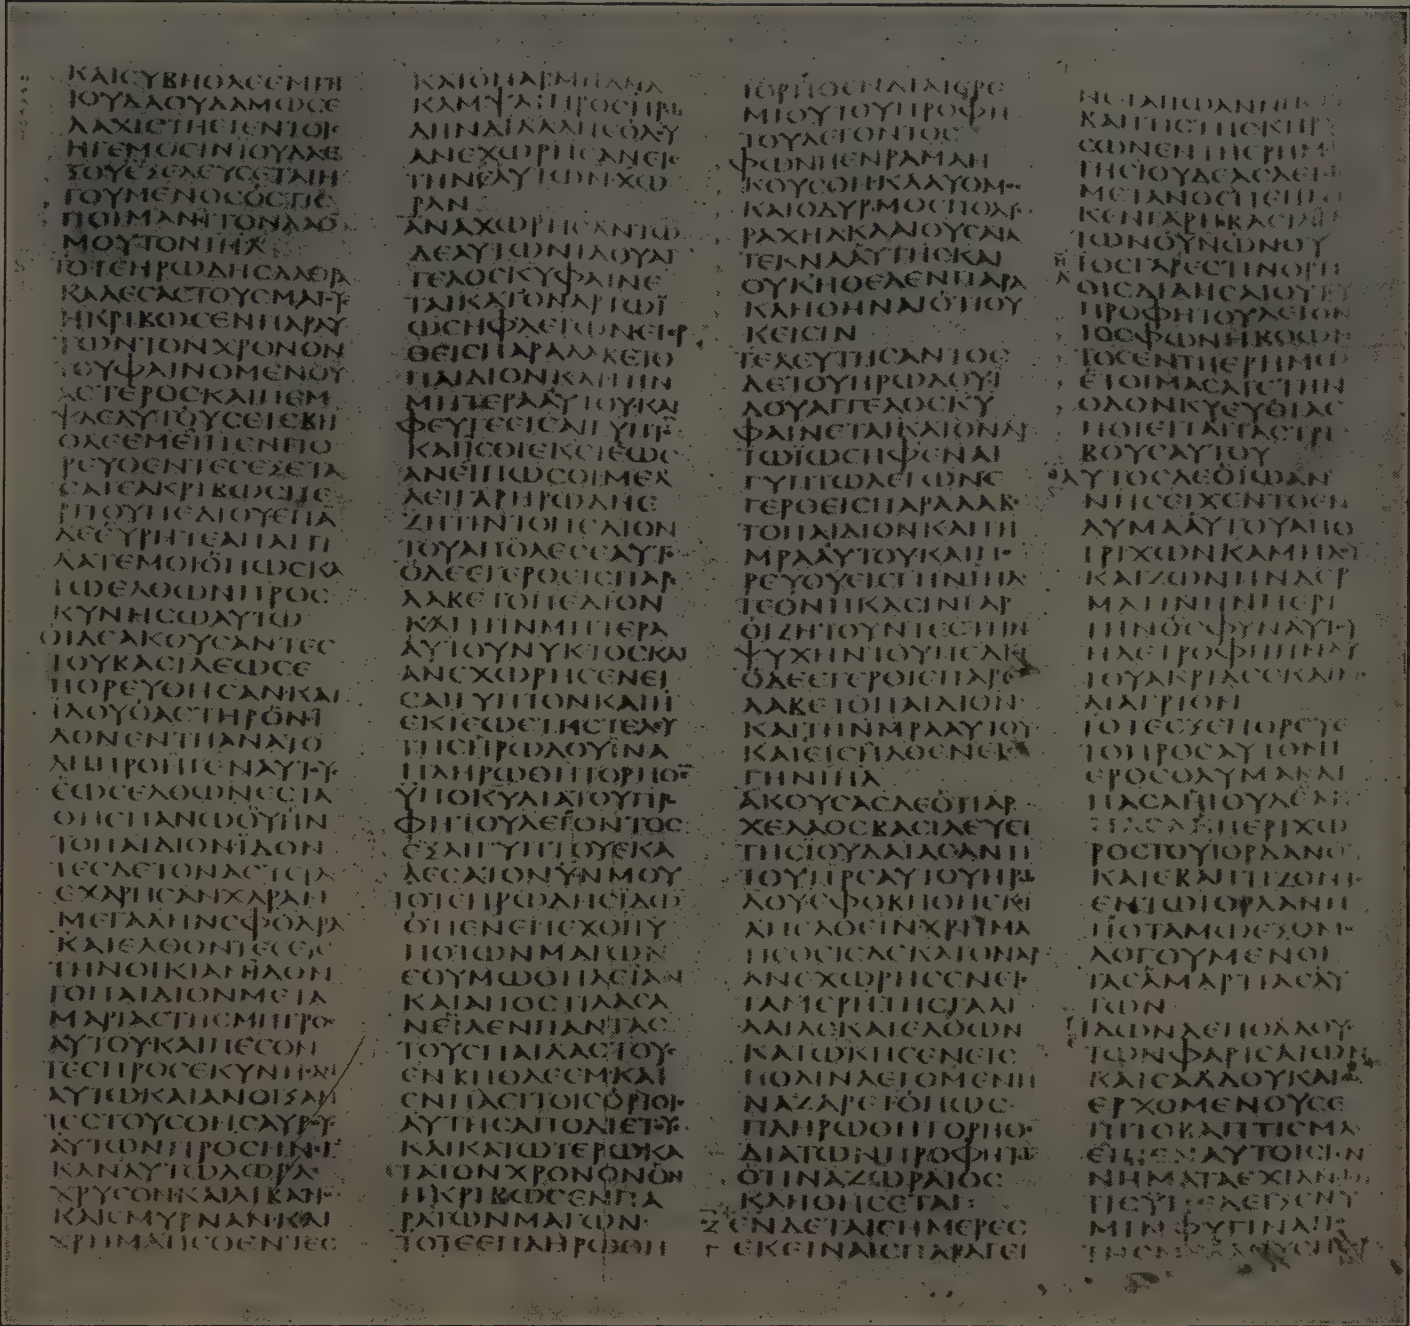 ΚΑΙΣΥΒΗΘΛΕΕΜΓΗ
ΙΟΥΔΑΟΥΔΑΜΩΣΕ
ΛΑΧΙΣΤΗΕΙΕΝΤΟΙΣ
ΗΓΕΜΟΣΙΝΙΟΥΔΑΕΚ
ΣΟΥΕΞΕΛΕΥΣΕΤΑΙΗ
ΓΟΥΜΕΝΟΣΟΣΤΙΣ
ΠΟΙΜΑΝΙΤΟΝΛΑΟ
ΜΟΥΤΟΝΙΗΛ
ΤΟΤΕΗΡΩΔΗΣΛΑΘΡΑ
ΚΑΛΕΣΑΣΤΟΥΣΜΑΓΟΥΣ
ΗΚΡΙΒΩΣΕΝΠΑΡΑΥ
ΤΩΝΤΟΝΧΡΟΝΟΝ
ΤΟΥΦΑΙΝΟΜΕΝΟΥ
ΑΣΤΕΡΟΣΚΑΙΠΕΜ
ΨΑΣΑΥΤΟΥΣΕΙΣΒΗ
ΘΛΕΕΜΕΙΠΕΝΠΟ
ΡΕΥΘΕΝΤΕΣΕΞΕΤΑ
ΣΑΤΕΑΚΡΙΒΩΣΠΕ
ΡΙΤΟΥΠΕΔΙΟΥΕΠΑ
ΔΕΕΥΡΗΤΕΑΠΑΓΓΙ
ΛΑΤΕΜΟΙΟΠΩΣΚΑ
ΓΩΕΛΘΩΝΠΡΟΣ
ΚΥΝΗΣΩΑΥΤΩ
ΟΙΔΕΑΚΟΥΣΑΝΤΕΣ
ΤΟΥΒΑΣΙΛΕΩΣΕ
ΠΟΡΕΥΘΗΣΑΝΚΑΙ
ΙΔΟΥΟΑΣΤΗΡΟΝΙ
ΔΟΝΕΝΤΗΑΝΑΤΟ
ΛΗΠΡΟΗΓΕΝΑΥΤΟΥΣ
ΕΩΣΕΛΘΩΝΕΣΤΑ
ΘΗΕΠΑΝΩΟΥΗΝ
ΤΟΠΑΙΔΙΟΝΙΔΟΝ
ΤΕΣΔΕΤΟΝΑΣΤΕΡΑ
ΕΧΑΡΗΣΑΝΧΑΡΑΝ
ΜΕΓΑΛΗΝΣΦΟΔΡΑ
ΚΑΙΕΛΘΟΝΤΕΣΕΙΣ
ΤΗΝΟΙΚΙΑΝΙΔΟΝ
ΤΟΠΑΙΔΙΟΝΜΕΤΑ
ΜΑΡΙΑΣΤΗΣΜΗΤΡΟΣ
ΑΥΤΟΥΚΑΙΠΕΣΟΝ
ΤΕΣΠΡΟΣΕΚΥΝΗΣΑΝ
ΑΥΤΩΚΑΙΑΝΟΙΞΑΝ
ΤΕΣΤΟΥΣΘΗΣΑΥΡΟΥΣ
ΑΥΤΩΝΠΡΟΣΗΝΕΓ
ΚΑΝΑΥΤΩΔΩΡΑ
ΧΡΥΣΟΝΚΑΙΛΙΒΑΝΟΝ
ΚΑΙΣΜΥΡΝΑΝΚΑΙ
ΧΡΗΜΑΤΙΣΘΕΝΤΕΣ
ΚΑΤΟΝΑΡΜΗΑΝΑ
ΚΑΜΨΑΙΠΡΟΣΗΡΩ
ΔΗΝΔΙΑΛΛΗΣΟΔΟΥ
ΑΝΕΧΩΡΗΣΑΝΕΙΣ
ΤΗΝΕΑΥΤΩΝΧΩ
ΡΑΝ
ΑΝΑΧΩΡΗΣΑΝΤΩ
ΔΕΑΥΤΩΝΙΔΟΥΑΓ
ΓΕΛΟΣΚΥΦΑΙΝΕ
ΤΑΙΚΑΤΟΝΑΡΤΩΙ
ΩΣΗΦΛΕΓΩΝΕΓΕΡ
ΘΕΙΣΠΑΡΑΛΑΒΕΤΟ
ΠΑΙΔΙΟΝΚΑΙΤΗΝ
ΜΗΤΕΡΑΑΥΤΟΥΚΑΙ
ΦΕΥΓΕΕΙΣΑΙΓΥΠΤΟ
ΚΑΙΙΣΘΙΕΚΕΙΕΩΣ
ΑΝΕΙΠΩΣΟΙΜΕΛ
ΛΕΙΓΑΡΗΡΩΔΗΣ
ΖΗΤΙΝΤΟΠΕΔΙΟΝ
ΤΟΥΑΠΟΛΕΣΕΑΥΤΟ
ΟΔΕΕΓΕΡΘΕΙΣΠΑΡ
ΛΑΒΕΤΟΠΕΔΙΟΝ
ΚΑΙΤΗΝΜΗΤΕΡΑ
ΑΥΤΟΥΝΥΚΤΟΣΚΑΙ
ΑΝΕΧΩΡΗΣΕΝΕΙΣ
ΕΓΥΠΤΟΝΚΑΙΗ
ΕΚΙΕΩΣΤΗΣΤΕΛΕΥ
ΤΗΣΗΡΩΔΟΥΙΝΑ
ΠΛΗΡΩΘΗΤΟΡΗΘΕ
ΥΠΟΚΥΔΙΑΤΟΥΠΡΟ
ΦΗΤΟΥΛΕΓΟΝΤΟΣ
ΕΞΑΙΓΥΠΤΟΥΕΚΑ
ΛΕΣΑΤΟΝΥΝΜΟΥ
ΤΟΤΕΗΡΩΔΗΣΙΔΩ
ΟΤΙΕΝΕΠΕΧΘΗΥ
ΠΟΤΩΝΜΑΓΩΝ
ΕΘΥΜΩΘΗΛΕΙΑΝ
ΚΑΙΑΠΟΣΤΙΛΑΣΑ
ΝΕΙΛΕΝΠΑΝΤΑΣ
ΤΟΥΣΠΑΙΔΑΣΤΟΥΣ
ΕΝΒΗΘΛΕΕΜΚΑΙ
ΕΝΠΑΣΙΤΟΙΣΟΡΙΟΙΣ
ΑΥΤΗΣΑΠΟΔΙΕΤΟΥΣ
ΚΑΙΚΑΤΩΤΕΡΩΚΑ
ΤΑΤΟΝΧΡΟΝΟΝΟΝ
ΗΚΡΙΒΩΣΕΝΠΑ
ΡΑΤΩΝΜΑΓΩΝ
ΤΟΤΕΕΠΛΗΡΩΘΗ
ΤΟΡΗΘΕΝΔΙΑΙΕΡΕ
ΜΙΟΥΤΟΥΠΡΟΦΗ
ΤΟΥΛΕΓΟΝΤΟΣ
ΦΩΝΗΕΝΡΑΜΑΗ
ΚΟΥΣΘΗΚΛΑΥΘΜΟΣ
ΚΑΙΟΔΥΡΜΟΣΠΟΛΥΣ
ΡΑΧΗΛΚΛΑΙΟΥΣΑΤΑ
ΤΕΚΝΑΑΥΤΗΣΚΑΙ
ΟΥΚΗΘΕΛΕΝΠΑΡΑ
ΚΛΗΘΗΝΑΙΟΤΙΟΥ
ΚΕΙΣΙΝ
ΤΕΛΕΥΤΗΣΑΝΤΟΣ
ΔΕΤΟΥΗΡΩΔΟΥΙ
ΔΟΥΑΓΓΕΛΟΣΚΥ
ΦΑΙΝΕΤΑΙΚΑΤΟΝΑΡ
ΤΩΙΩΣΗΦΕΝΑΙ
ΓΥΠΤΩΛΕΓΩΝΕ
ΓΕΡΘΕΙΣΠΑΡΑΛΑΒΕ
ΤΟΠΑΙΔΙΟΝΚΑΙΤΗ
ΜΡΑΑΥΤΟΥΚΑΙΠΟ
ΡΕΥΟΥΕΙΣΓΗΝΙΗΛ
ΤΕΘΝΗΚΑΣΙΝΓΑΡ
ΟΙΖΗΤΟΥΝΤΕΣΤΗΝ
ΨΥΧΗΝΤΟΥΠΕΔΙ
ΟΔΕΕΓΕΡΘΙΣΠΑΡΕ
ΛΑΒΕΤΟΠΑΙΔΙΟΝ
ΚΑΙΤΗΝΜΡΑΑΥΤΟΥ
ΚΑΙΕΙΣΗΛΘΕΝΕΙΣ
ΓΗΝΙΗΛ
ΑΚΟΥΣΑΣΔΕΟΤΙΑΡ
ΧΕΛΑΟΣΒΑΣΙΛΕΥΕΙ
ΤΗΣΙΟΥΔΑΙΑΣΑΝΤΙ
ΤΟΥΠΡΣΑΥΤΟΥΗΡΩ
ΔΟΥΕΦΟΒΗΘΗΕΚΙ
ΑΠΕΛΘΕΙΝΧΡΗΜΑ
ΤΙΣΘΙΣΔΕΚΑΤΟΝΑΡ
ΑΝΕΧΩΡΗΣΕΝΕΙΣ
ΤΑΜΕΡΗΤΗΣΓΑΛΙ
ΛΑΙΑΣΚΑΙΕΛΘΩΝ
ΚΑΤΩΚΗΣΕΝΕΙΣ
ΠΟΛΙΝΛΕΓΟΜΕΝΗ
ΝΑΖΑΡΕΤΟΠΩΣ
ΠΛΗΡΩΘΗΤΟΡΗΘΕ
ΔΙΑΤΩΝΠΡΟΦΗΤΩ
ΟΤΙΝΑΖΩΡΑΙΟΣ
ΚΛΗΘΗΣΕΤΑΙ
ΕΝΔΕΤΑΙΣΗΜΕΡΕΣ
ΕΚΕΙΝΑΙΣΠΑΡΑΓΕΙ
ΝΕΤΑΙΙΩΑΝΝΗΣ
ΚΑΙΠΙΣΤΗΣΚΗΡΥΣ
ΣΩΝΕΝΤΗΕΡΗΜΩ
ΤΗΣΙΟΥΔΕΑΣΛΕΓΩ
ΜΕΤΑΝΟΕΙΤΕΗΓΓΙ
ΚΕΝΓΑΡΗΒΑΣΙΛΕΙΑ
ΤΩΝΟΥΝΩΝΟΥ
ΤΟΣΓΑΡΕΣΤΙΝΟΡΗ
ΘΙΣΔΙΑΗΣΑΙΟΥΤΟΥ
ΠΡΟΦΗΤΟΥΛΕΓΟΝ
ΤΟΣΦΩΝΗΒΟΩΝ
ΤΟΣΕΝΤΗΕΡΗΜΩ
ΕΤΟΙΜΑΣΑΤΕΤΗΝ
ΟΔΟΝΚΥΕΥΘΙΑΣ
ΠΟΙΕΙΤΑΙΤΑΣΤΡΙ
ΒΟΥΣΑΥΤΟΥ
ΑΥΤΟΣΔΕΟΙΩΑΝ
ΝΗΣΕΙΧΕΝΤΟΕΝ
ΔΥΜΑΑΥΤΟΥΑΠΟ
ΤΡΙΧΩΝΚΑΜΗΛΟΥ
ΚΑΙΖΩΝΗΝΔΕΡ
ΜΑΤΙΝΗΝΠΕΡΙ
ΤΗΝΟΣΦΥΝΑΥΤΟΥ
ΗΔΕΤΡΟΦΗΗΝΑΥ
ΤΟΥΑΚΡΙΔΕΣΚΑΙΜΕ
ΛΙΑΓΡΙΟΝ
ΤΟΤΕΕΞΕΠΟΡΕΥΕ
ΤΟΠΡΟΣΑΥΤΟΝΙ
ΕΡΟΣΟΛΥΜΑΚΑΙ
ΠΑΣΑΗΙΟΥΔΕΑΚΑΙ
ΠΑΣΑΗΠΕΡΙΧΩ
ΡΟΣΤΟΥΙΟΡΔΑΝΟΥ
ΚΑΙΕΒΑΠΤΙΖΟΝΤΟ
ΕΝΤΩΙΟΡΔΑΝΗ
ΠΟΤΑΜΩΕΞΟΜΟ
ΛΟΓΟΥΜΕΝΟΙ
ΤΑΣΑΜΑΡΤΙΑΣΑΥ
ΤΩΝ
ΙΔΩΝΔΕΠΟΛΛΟΥΣ
ΤΩΝΦΑΡΙΣΑΙΩΝ
ΚΑΙΣΑΔΔΟΥΚΑΙΩ
ΕΡΧΟΜΕΝΟΥΣΕ
ΠΙΤΟΒΑΠΤΙΣΜΑ
ΕΙΠΕΝΑΥΤΟΙΣΓΕΝ
ΝΗΜΑΤΑΕΧΙΔΝΩ
ΤΙΣΥΠΕΔΕΙΞΕΝΥ
ΜΙΝΦΥΓΙΝΑΠΟ